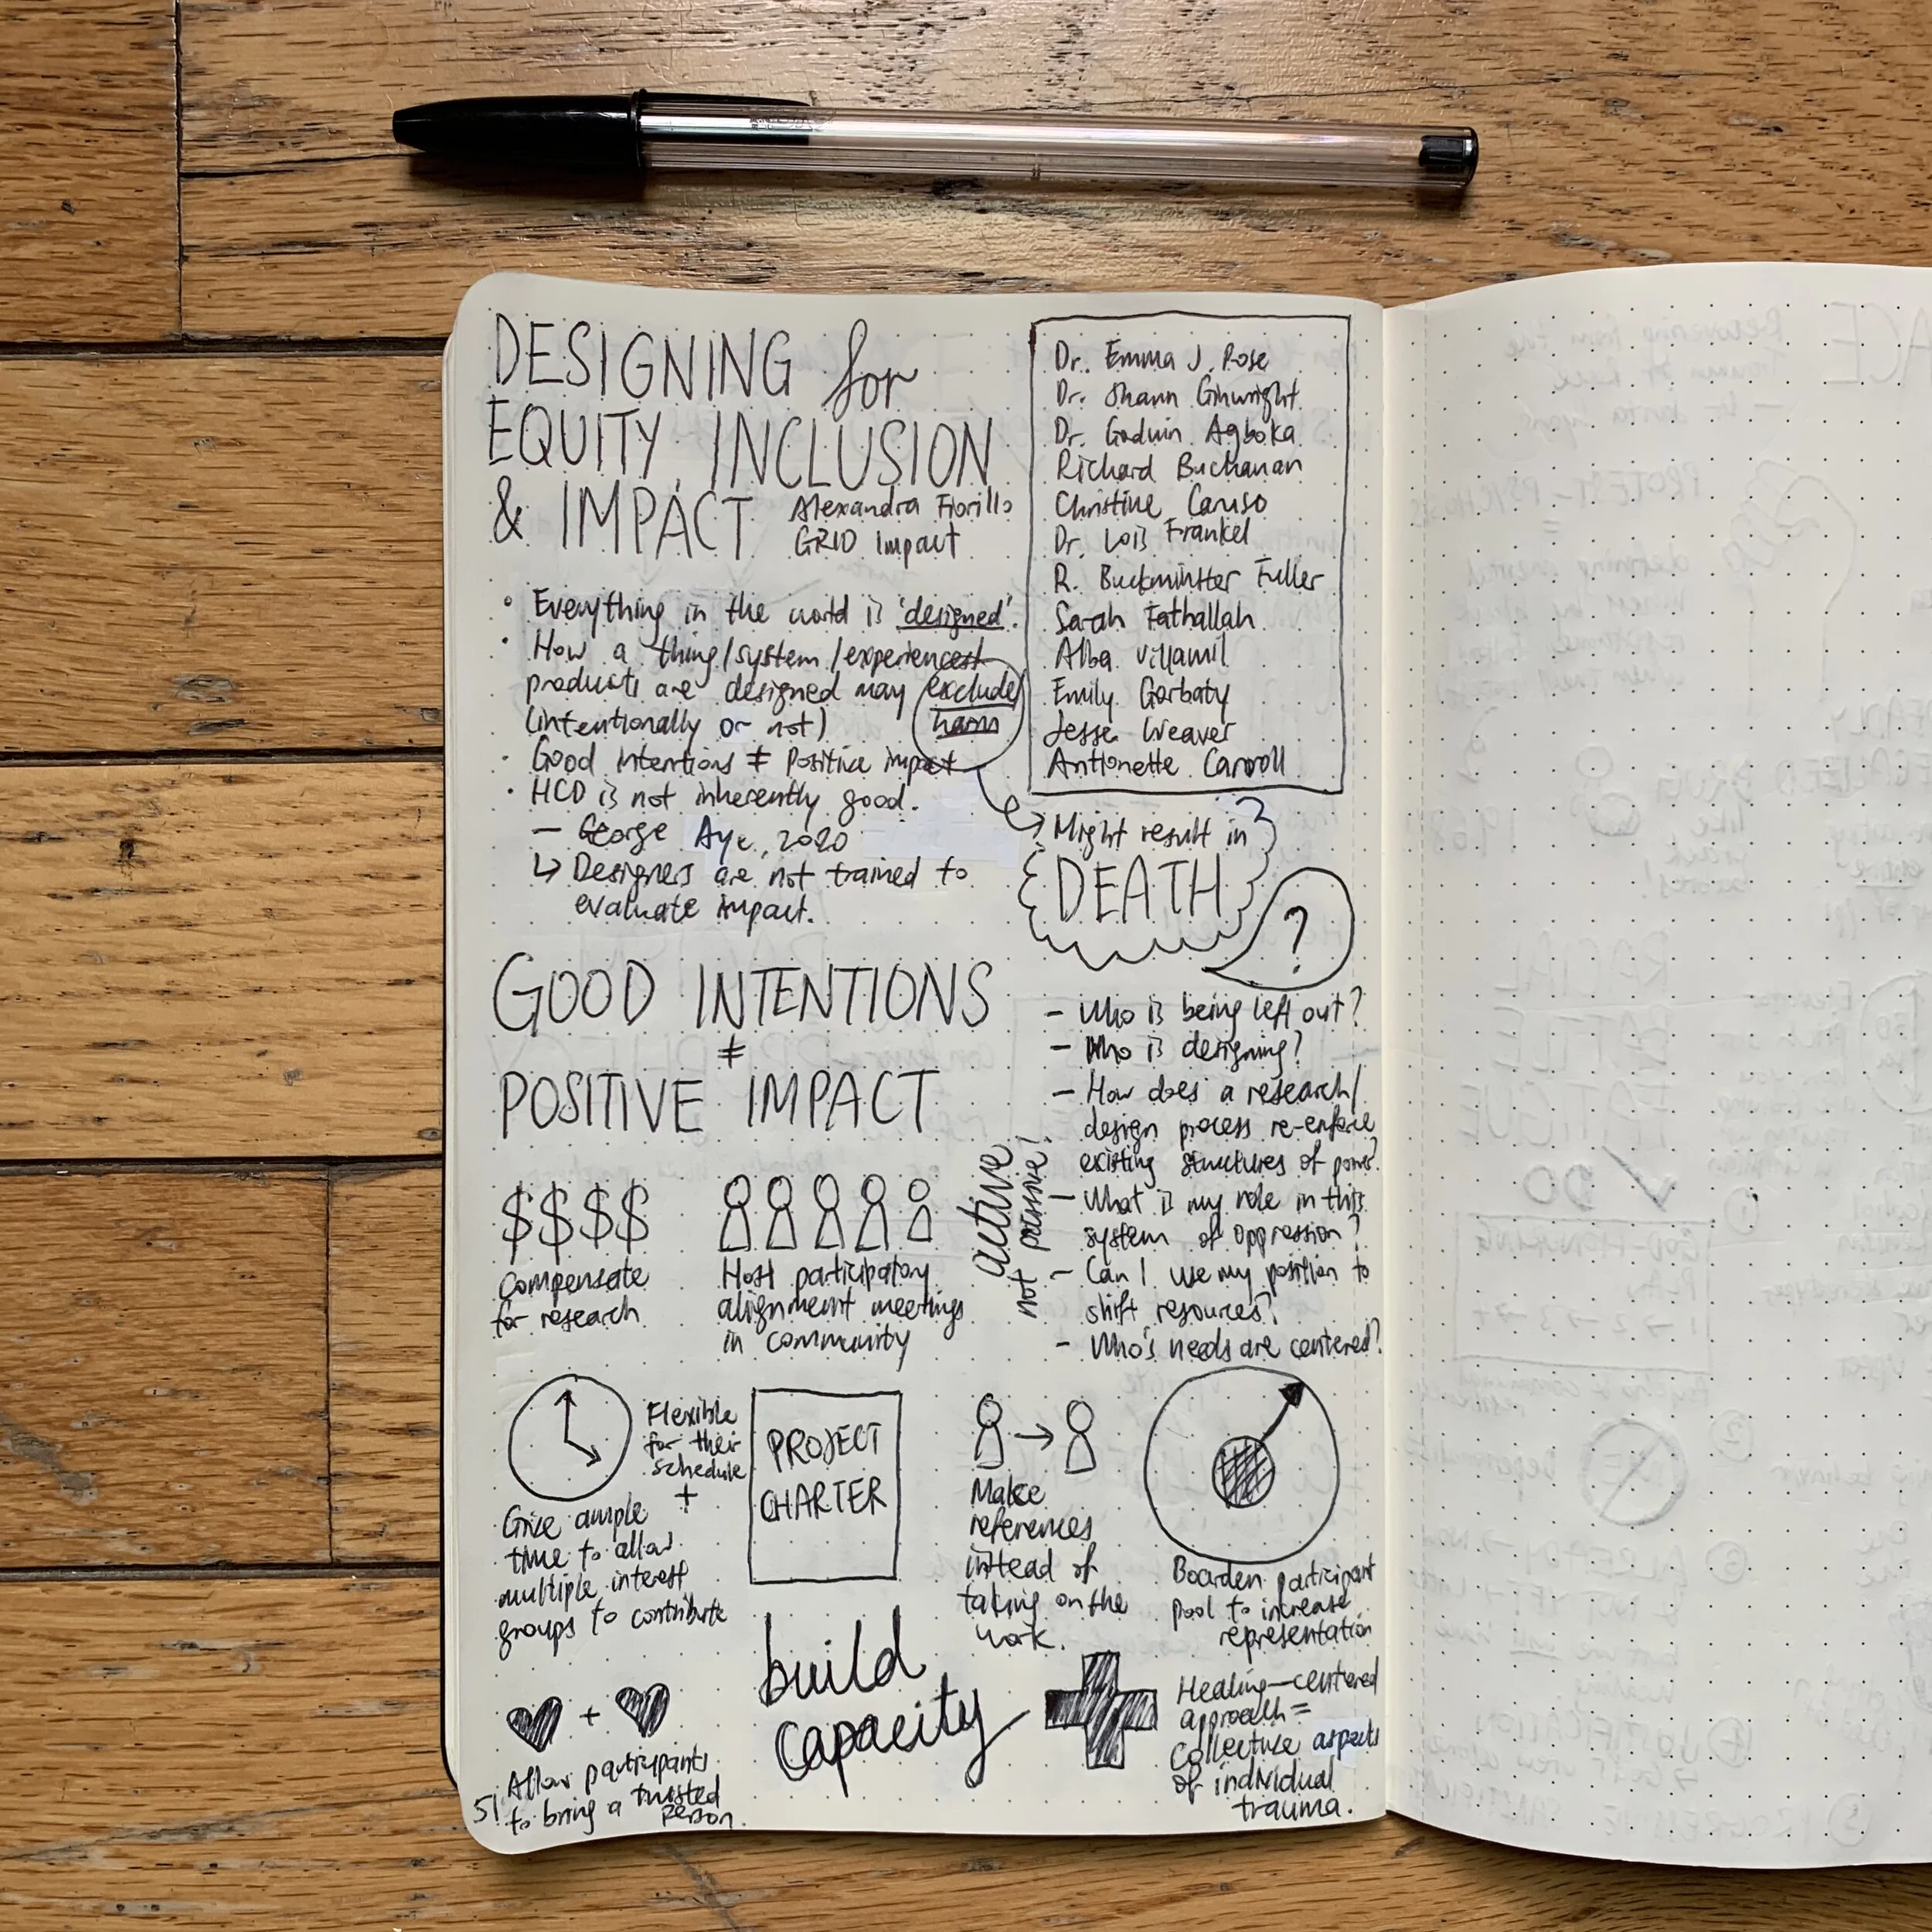 DESIGNING for
EQUITY, INCLUSION
& IMPACT
Alexandra Fiorillo
GRID Impact
• Everything in the world is 'designed'.
• How a thing/system/experience
products are designed may exclude/
(intentionally or not) harm
• Good intentions ≠ Positive impact
• HCD is not inherently good.
— George Aye, 2020
↳ Designers are not trained to
evaluate impact.
Dr. Emma J. Rose
Dr. Shawn Ginwright
Dr. Godwin Agboka
Richard Buchanan
Christine Caruso
Dr. Lois Frankel
R. Buckminster Fuller
Sarah Fathallah
Alba Villamil
Emily Gorbaty
Jesse Weaver
Antionette Carroll
Might result in
DEATH
?
GOOD INTENTIONS
≠
POSITIVE IMPACT
- Who is being left out?
- Who is designing?
- How does a research/
design process re-enforce
existing structures of power?
- What is my role in this
system of oppression?
- Can I use my position to
shift resources?
- Who's needs are centered?
active
not passive!
$$$$
Compensate
for research
Host participatory
alignment meetings
in community
Flexible
for their
schedule
+
Give ample
time to allow
multiple interest
groups to contribute
PROJECT
CHARTER
Make
references
instead of
taking on the
work.
Boarden participant
pool to increase
representation
build
capacity
+
Allow participants
to bring a trusted
person.
Healing-centered
approach =
Collective aspects
of individual
trauma.
51